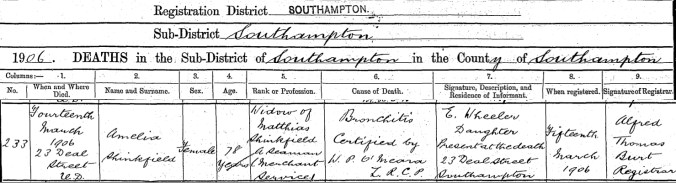 Registration District SOUTHAMPTON.
Sub-District Southampton
1906. DEATHS in the Sub-District of Southampton in the County of Southampton
Columns:— 1. 2. 3. 4. 5. 6. 7. 8. 9.
No. When and Where Died. Name and Surname. Sex. Age. Rank or Profession. Cause of Death. Signature, Description, and Residence of Informant. When registered. Signature of Registrar.
233
Fourteenth
March
1906
23 Deal
Street
U.D.
Amelia
Shinkfield
Female
78
Years
Widow of
Matthias
Shinkfield
a Seaman
(Merchant
Services)
Bronchitis
Certified by
W. P. O'Meara
L.R.C.P.
E. Wheeler
Daughter
Present at the death
23 Deal Street
Southampton
Fifteenth
March
1906
Alfred
Thomas
Burt
Registrar